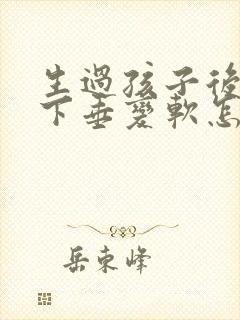 生過孩子後
下垂變軟怎
岳東峰